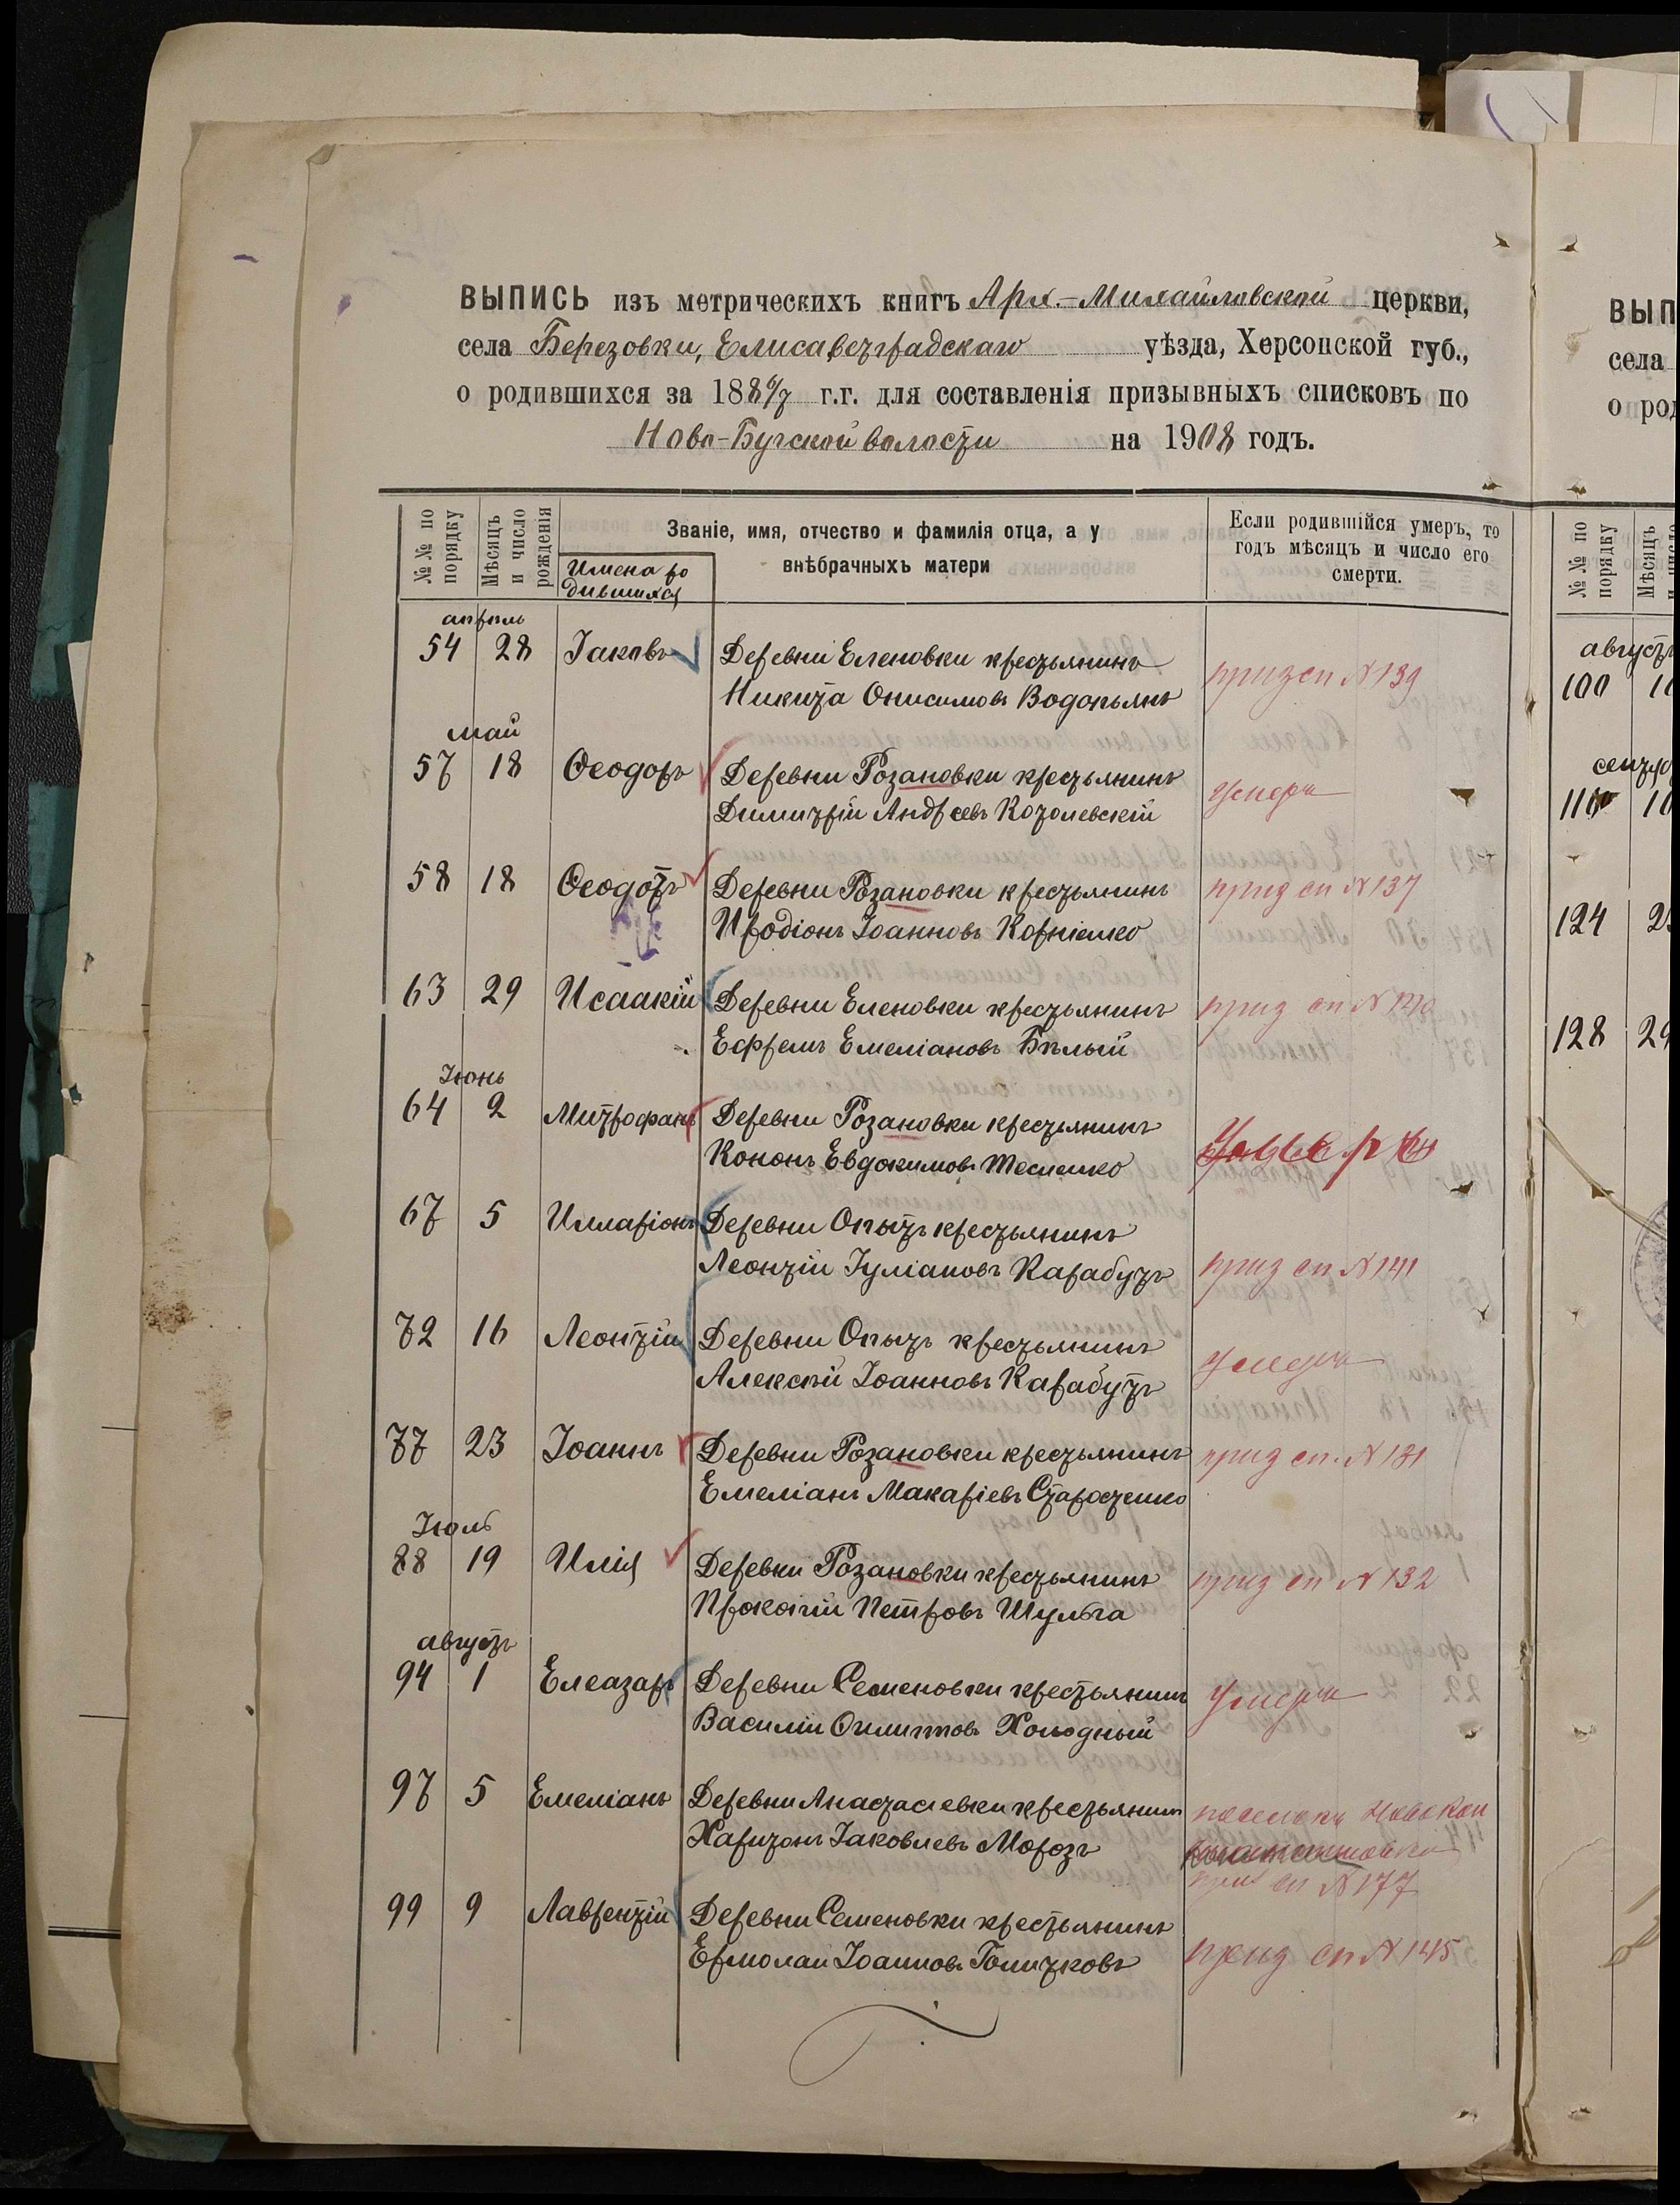 ВЫПИСЬ изъ метрическихъ книгъ Арх.-Михайловской церкви,
села Березовки, Елисаветградскаго уѣзда, Херсонской губ.,
о родившихся за 1886/7 г.г. для составленія призывныхъ списковъ по
Ново-Бугской волости на 1908 годъ.
№№ по порядку
Мѣсяцъ и число рожденія
Имена родившихся
Званіе, имя, отчество и фамилія отца, а у внѣбрачныхъ матери
Если родившійся умеръ, то годъ мѣсяцъ и число его смерти.
апрѣль
54 28 Іаковъ Деревни Еленовки крестьянинъ
Никита Онисимовъ Водопьянъ приз сп № 139
май
57 18 Ѳеодоръ Деревни Розановки крестьянинъ
Димитрій Андреевъ Королевскій умеръ
58 18 Ѳеодотъ Деревни Розановки крестьянинъ приз сп № 137
Иродіонъ Іоанновъ Корніенко
63 29 Исаакій Деревни Еленовки крестьянинъ приз сп № 140
Ефремъ Емеліановъ Бѣлый
Іюнь
64 2 Митрофанъ Деревни Розановки крестьянинъ
Кононъ Евдокимовъ Тесленко Умеръ
67 5 Илларіонъ Деревни Опытъ крестьянинъ
Леонтій Іуліановъ Карабутъ приз сп № 141
72 16 Леонтій Деревни Опытъ крестьянинъ
Алексѣй Іоанновъ Карабутъ умеръ
77 23 Іоаннъ Деревни Розановки крестьянинъ приз сп. № 131
Емеліанъ Макаріевъ Старостенко
Іюль
88 19 Илія Деревни Розановки крестьянинъ приз сп № 132
Прокопій Петровъ Шульга
августъ
94 1 Елеазаръ Деревни Семеновки крестьянинъ умеръ
Василій Филиповъ Холодный
97 5 Емеліанъ Деревни Анастасіевки крестьянинъ
Харитонъ Іаковлевъ Морозъ
приз сп № 177
99 9 Лаврентій Деревни Семеновки крестьянинъ
Ермолай Іоанновъ приз сп № 145
ВЫП
села
о род
№№ по порядку
Мѣсяцъ
августъ
100
124
128 29